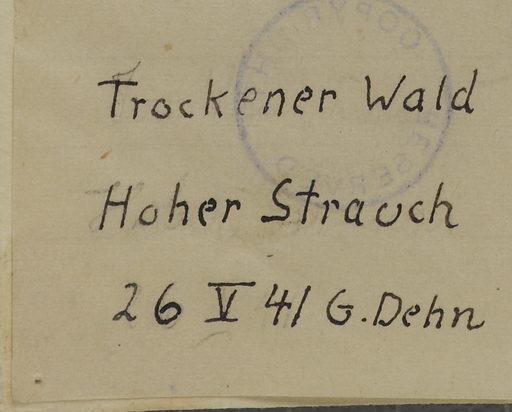 Trockener Wald
Hoher Strauch
26 V 41 G. Dehn